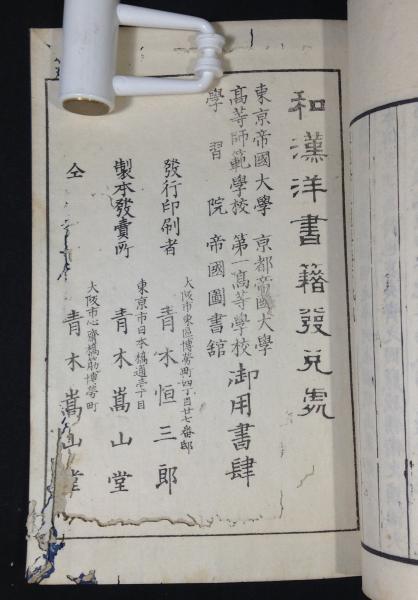 和漢洋書籍發兌處
東京帝國大學 京都帝國大學
高等師範學校 第一高等學校 御用書肆
學習院 帝國圖書舘
大阪市東區博勞町四丁目廿七番邸
發行印刷者 青木恒三郎
東京市日本橋通壱丁目
製本發賣所 青木嵩山堂
大阪市心齋橋筋博勞町
仝 青木嵩山堂